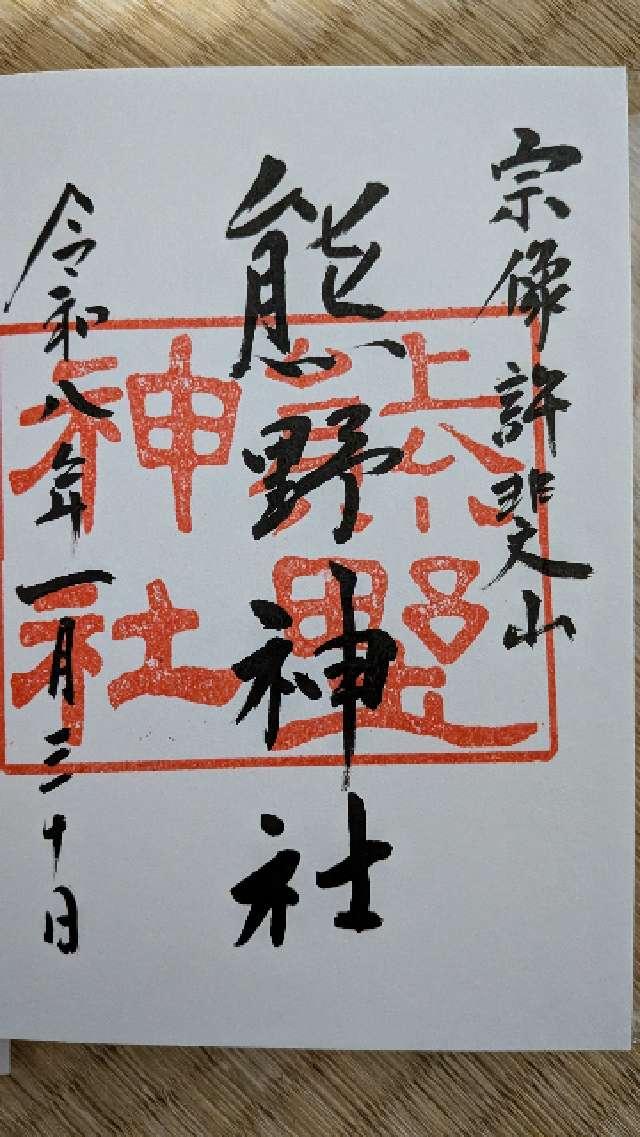 宗像 許斐山
熊野神社
熊野
神社
令和八年一月三十日